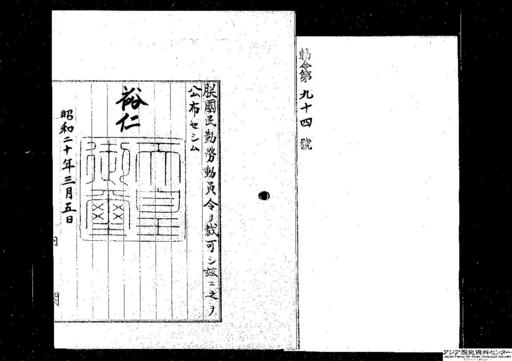 勅令第九十四號
朕國民勤勞動員令ヲ裁可シ玆ニ之ヲ
公布セシム
裕仁
天皇
御璽
昭和二十年三月五日
内閣
アジア歴史資料センター